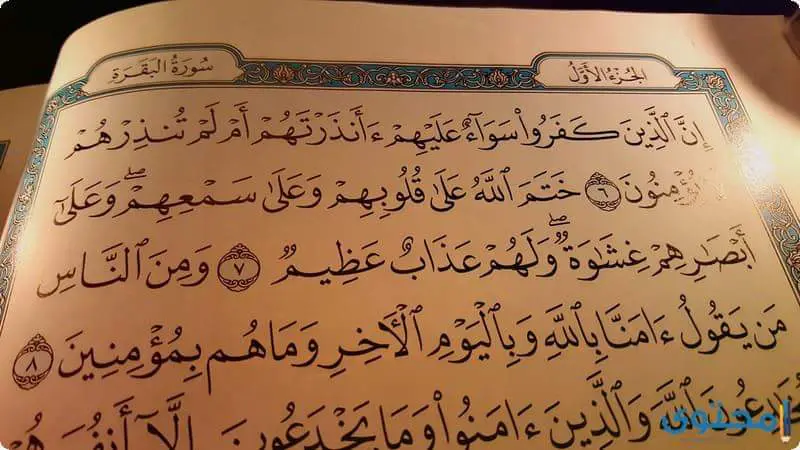 الجزء الأول
سورة البقرة
إِنَّ ٱلَّذِينَ كَفَرُوا۟ سَوَآءٌ عَلَيْهِمْ ءَأَنذَرْتَهُمْ أَمْ لَمْ تُنذِرْهُمْ
يُؤْمِنُونَ ٦ خَتَمَ ٱللَّهُ عَلَىٰ قُلُوبِهِمْ وَعَلَىٰ سَمْعِهِمْ ۖ وَعَلَىٰٓ
أَبْصَـٰرِهِمْ غِشَـٰوَةٌ ۖ وَلَهُمْ عَذَابٌ عَظِيمٌ ٧ وَمِنَ ٱلنَّاسِ
مَن يَقُولُ ءَامَنَّا بِٱللَّهِ وَبِٱلْيَوْمِ ٱلْـَٔاخِرِ وَمَا هُم بِمُؤْمِنِينَ ٨
ٱللَّهَ وَٱلَّذِينَ ءَامَنُوا۟ وَمَا يَخْدَعُونَ إِلَّآ
محتوى